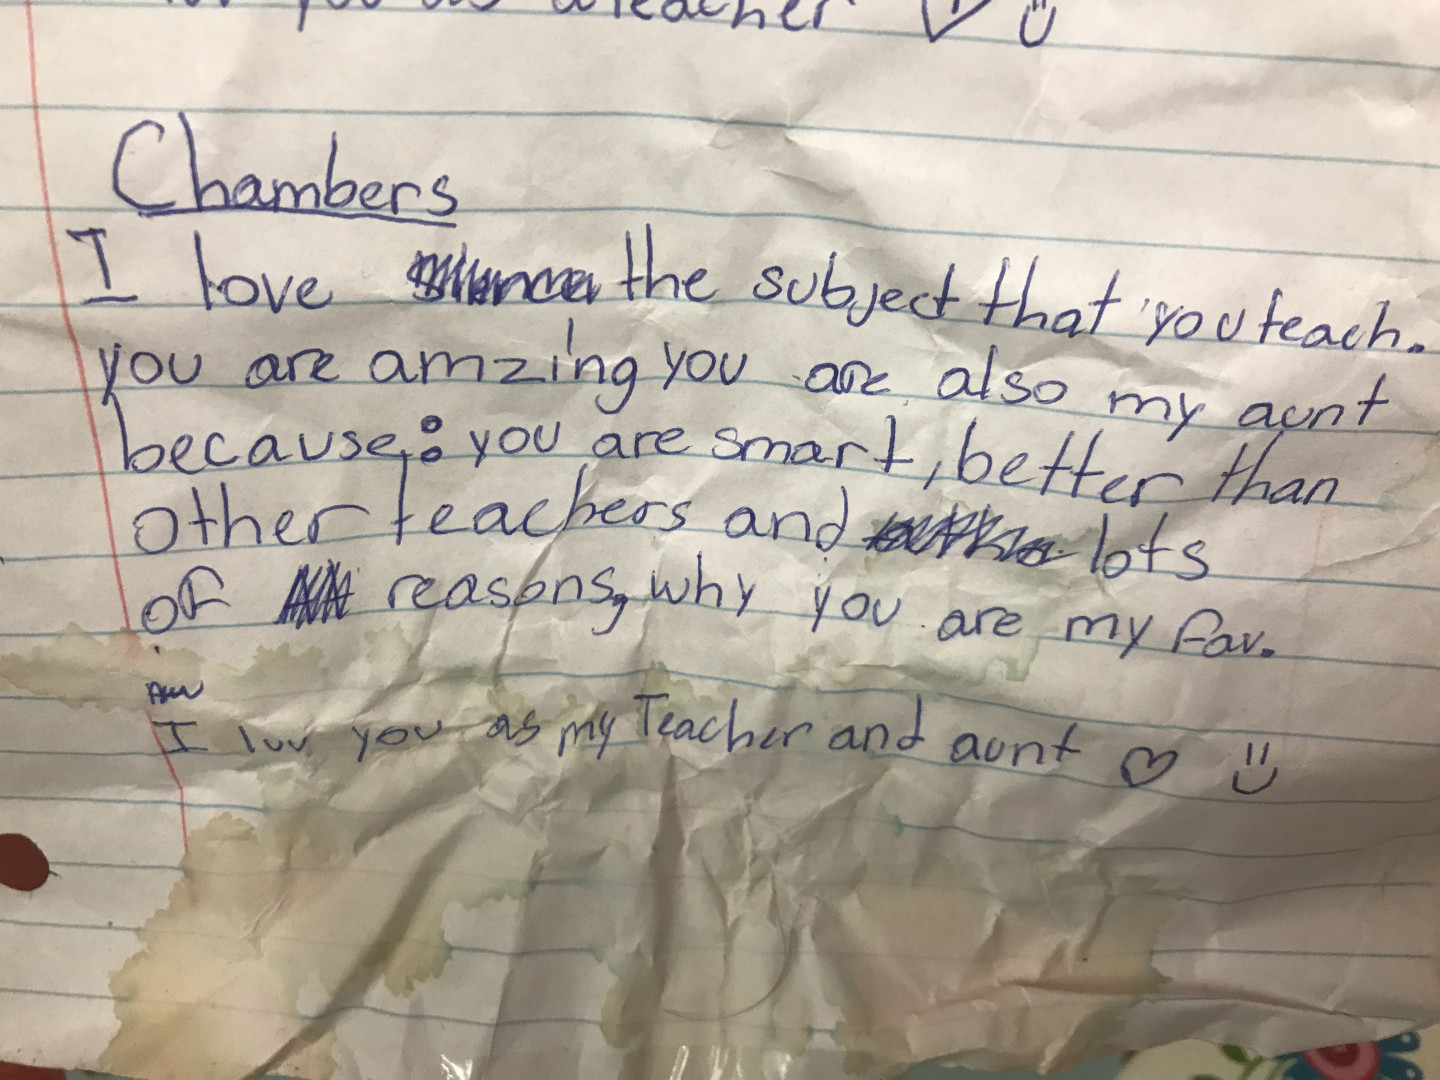 you as a teacher ♡
Chambers
I love the subject that you teach.
you are amzing you are also my aunt
because: you are smart, better than
other teachers and lots
of reasons, why you are my fav.
I luv you as my Teacher and aunt ♡